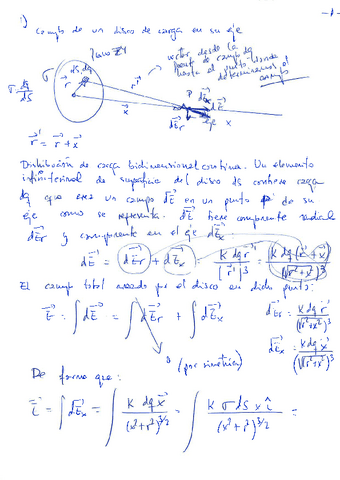 -1-
1) Campo de un disco de carga en su eje
dS, dq
vector desde la
hasta el punto donde
determinamos el
campo
σ = dq/dS
σ
r
r'
x
P
dE_x
dE
dE_r
eje
x
r' = r + x
Distribución de carga bidimensional continua. Un elemento
infinitesimal de superficie del disco dS contiene carga
dq que crea un campo dE en un punto P de su
eje como se representa. dE tiene componente radial
dE_r y componente en el eje dE_x
dE = dE_r + dE_x = K dq r' / (r')^3 = K dq (r + x) / (√r²+x²)^3
El campo total creado por el disco en dicho punto:
E = ∫ dE = ∫ dE_r + ∫ dE_x
dE_r = K dq r / (√r²+x²)^3
dE_x = K dq x / (√r²+x²)^3
0 (por simetría)
De forma que:
E = ∫ dE_x = ∫ K dq x / (x²+r²)^3/2 = ∫ K σ dS x i / (x²+r²)^3/2 =